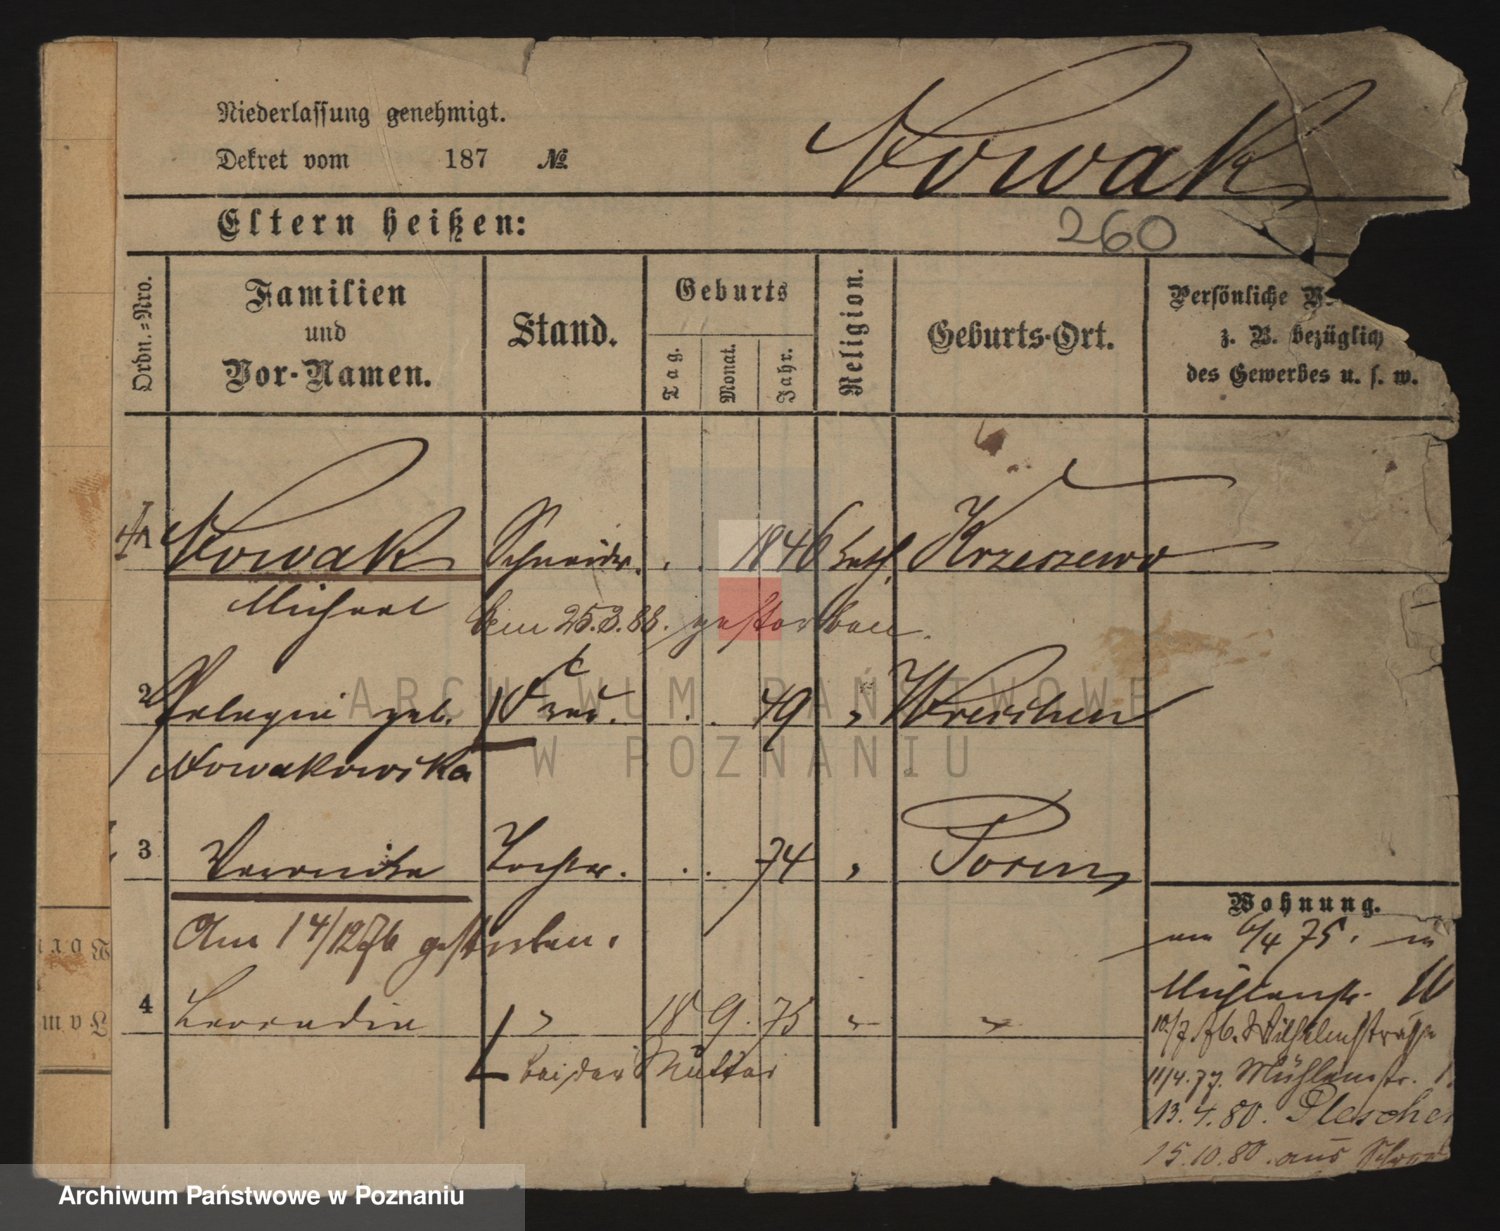 Niederlassung genehmigt.
Dekret vom 187 №
Nowak
Eltern heißen:
260
Ordn.-Nro.
Familien
und
Vor-Namen.
Stand.
Geburts
Tag.
Monat.
Jahr.
Religion.
Geburts-Ort.
Persönliche
z. B. bezüglich
des Gewerbes u. s. w.
1 Nowak Schneider . . 1846 kath. Krzeszewo
Michael
am 25.3.88. gestorben.
2 Pelagia geb. Frau . . 49 " Wreschen
Nowakowska
3 Veronika Tochter . . 74 " Posen
Am 14/12 76 gestorben.
4 Leocadia " 18 9. 75 " "
bei der Mutter
Wohnung.
am 6/4 75. in
Mühlenstr.
10./7. 76. Wilhelmstraße
11/4. 77. Mühlenstr.
13. 4. 80. Plesche
15.10.80. aus
Archiwum Państwowe
w Poznaniu
Archiwum Państwowe w Poznaniu